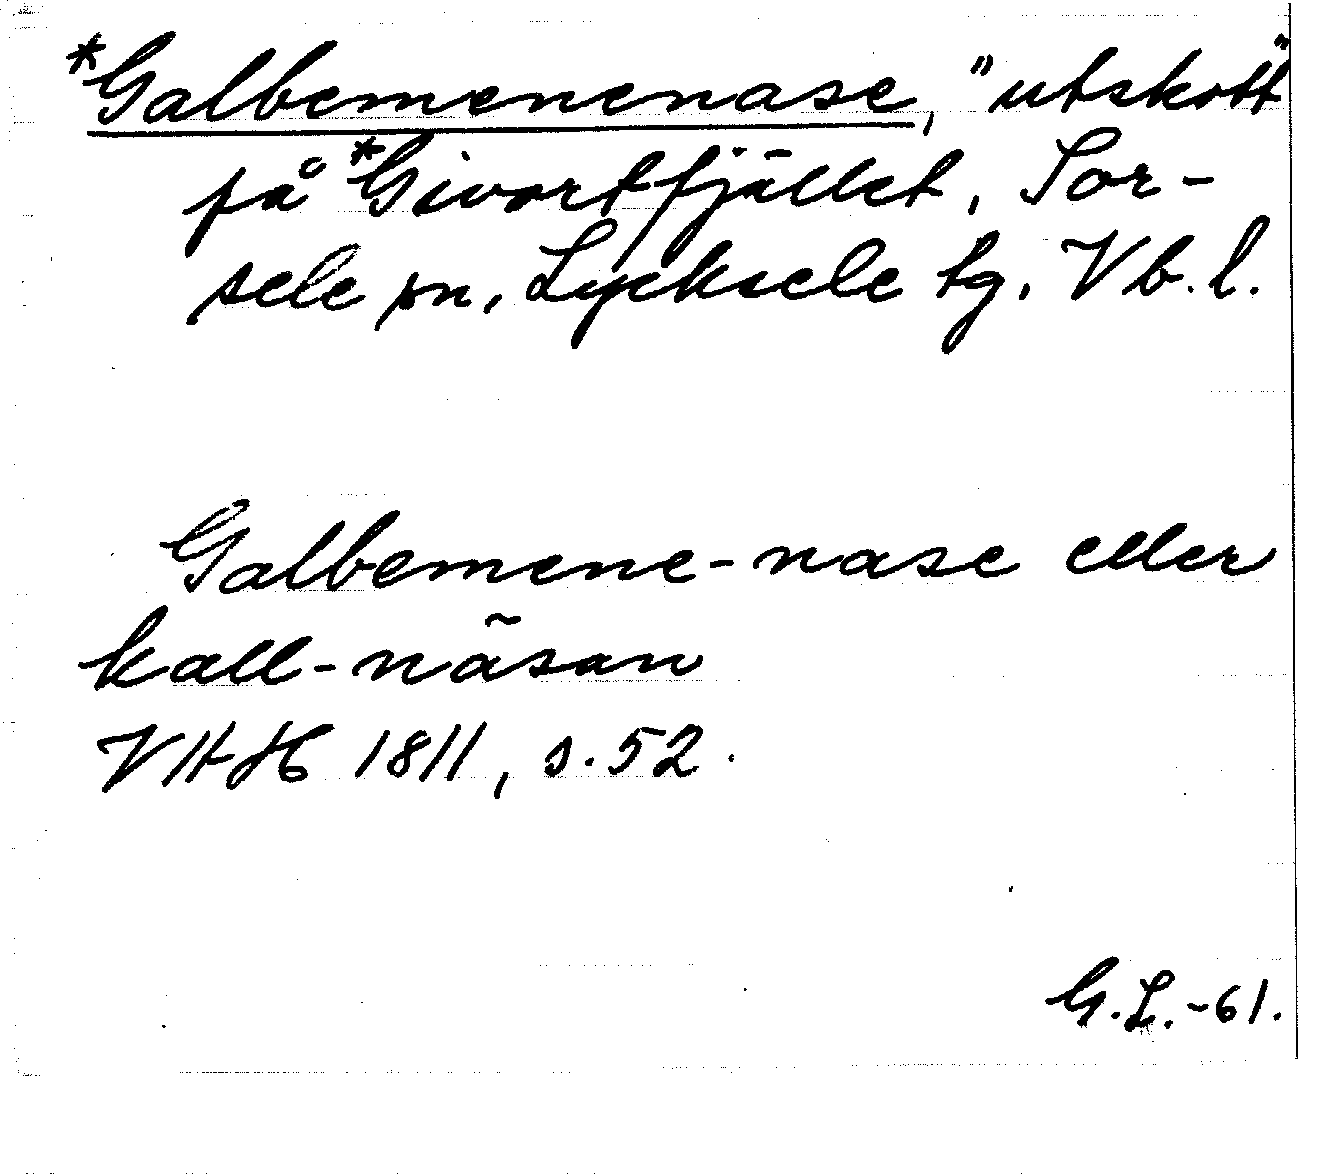 *Galbemenenase, "utskott"
på *Givortfjället, Sor-
sele sn, Lycksele tg. Vb. l.
Galbemene-nase eller
kall-näsan
VHH 1811, s. 52.
G. L. -61.